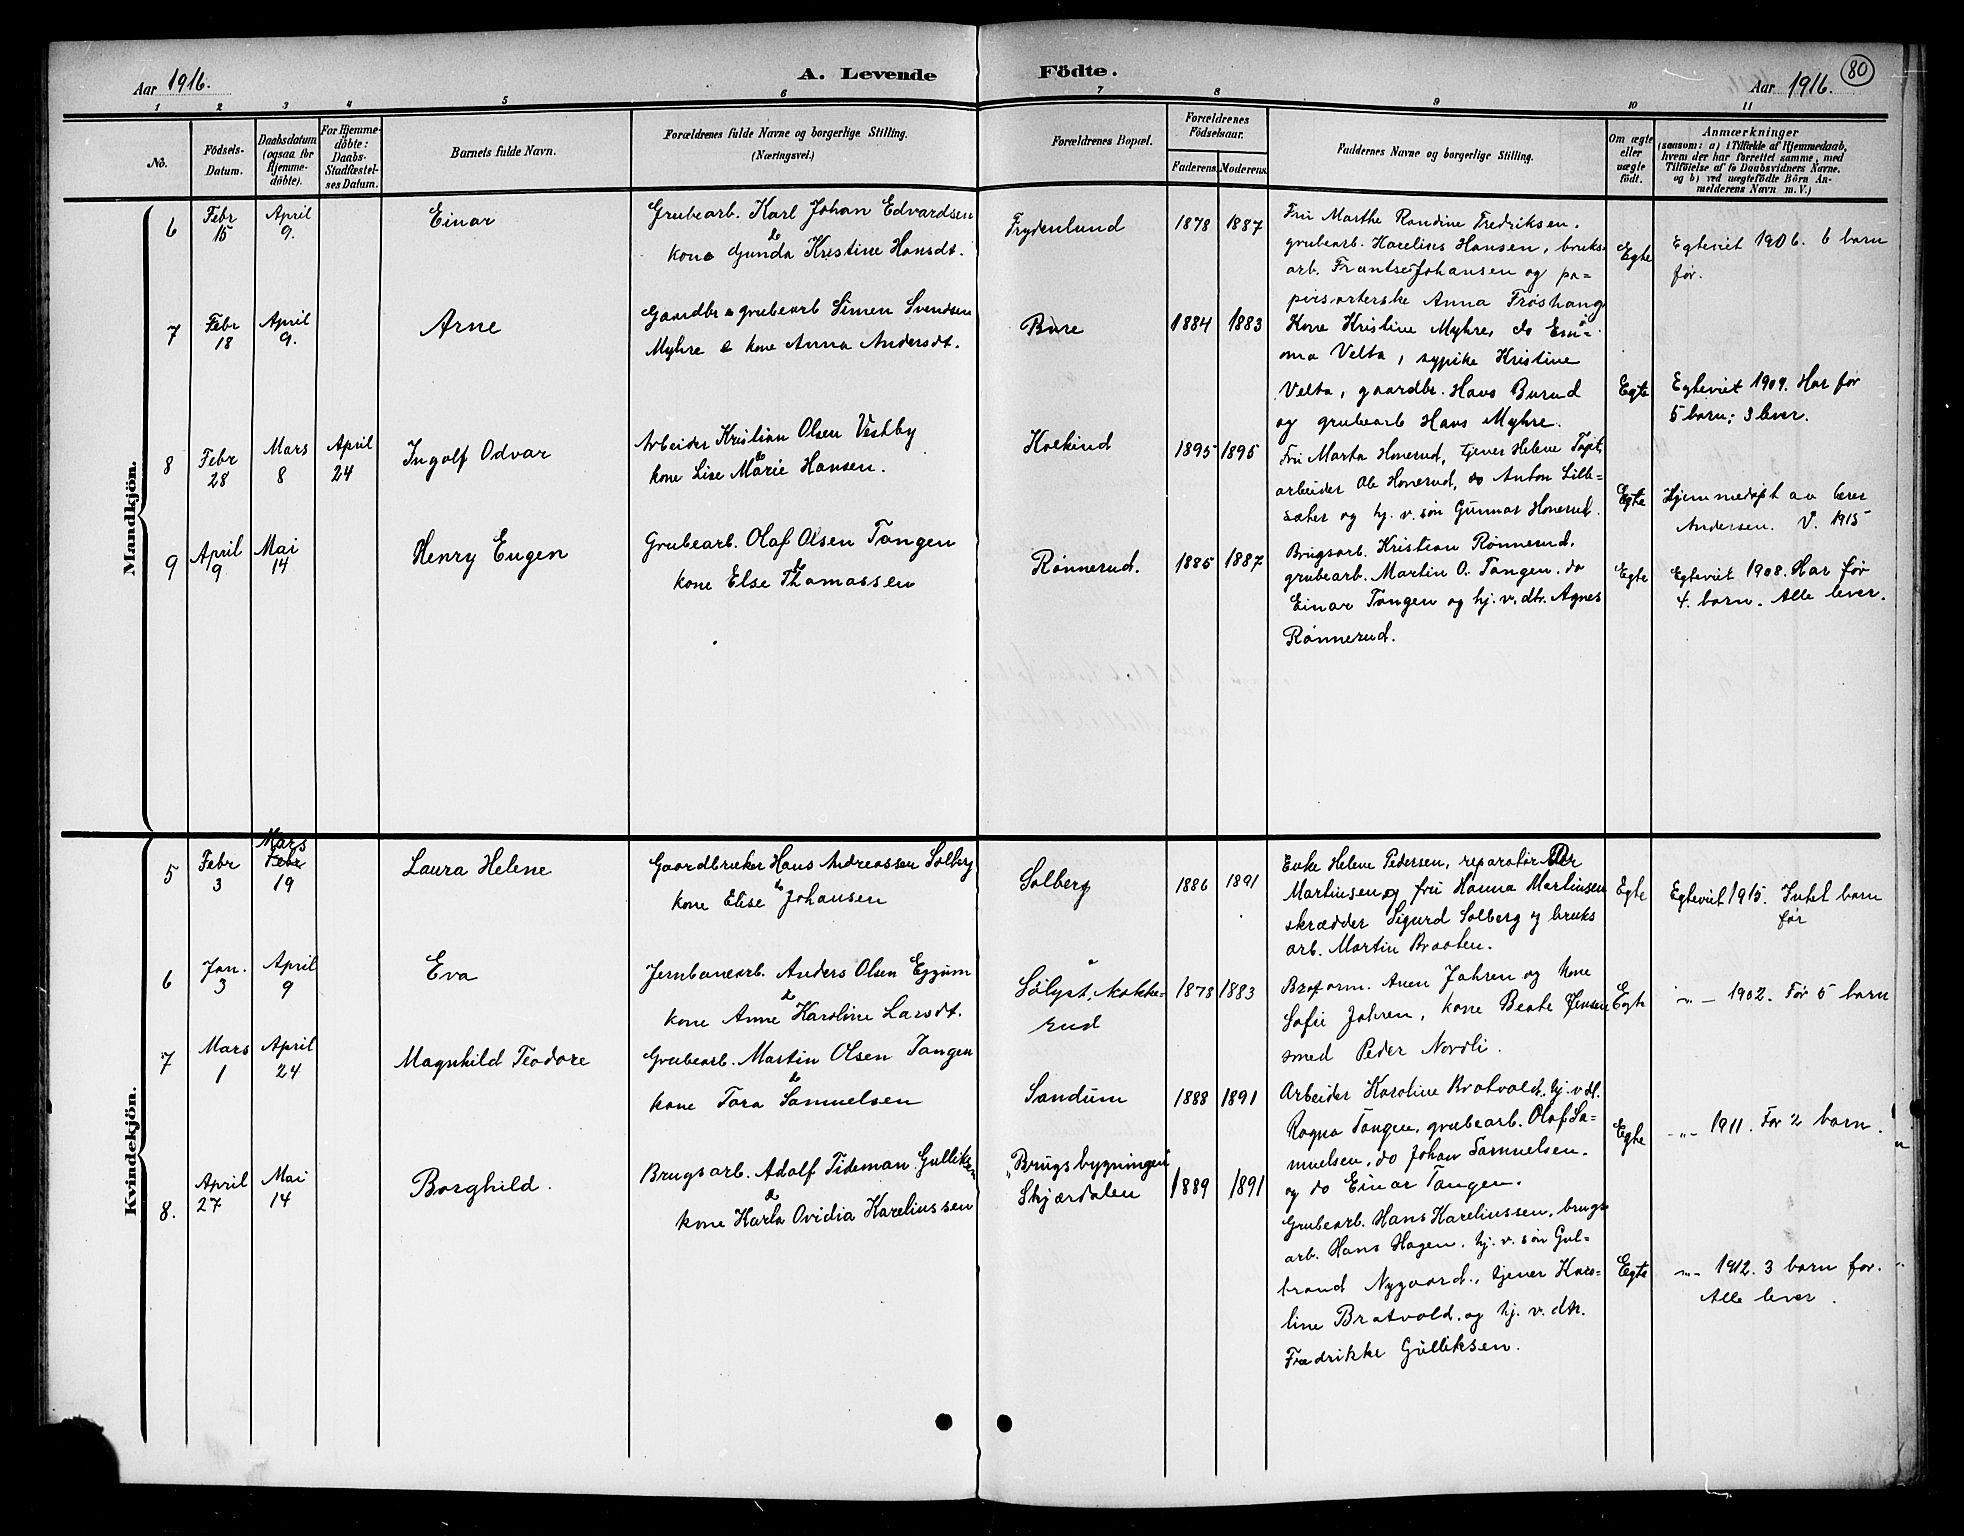 Aar 1916. A. Levende Födte. Aar 1916. 80
1 2 3 4 5 6 7 8 9 10 11
No.
Födsels-
Datum.
Daabsdatum
(ogsaa for
Hjemme-
döbte).
For Hjemme-
döbte:
Daabs-
Stadfæstel-
ses Datum.
Barnets fulde Navn.
Forældrenes fulde Navne og borgerlige Stilling.
(Næringsvei.)
Forældrenes Bopæl.
Forældrenes
Födselsaar.
Faderens. Moderens.
Faddernes Navne og borgerlige Stilling.
Om ægte
eller
uægte
födt.
Anmærkninger
(saasom: a) i Tilfælde af Hjemmedaab,
hvem der har forrettet samme, med
Tilföielse af to Daabsvidners Navne.
og b) ved uægtefödte Börn An-
melderens Navn m. V.)
Mandkjön.
6
Febr
15
April
9.
Einar
Grubearb. Karl Johan Edvardsen
&
kone Gunda Kristine Hansdt.
Frydenlund
1878 1887
Fru Marthe Randine Fredriksen.
grubearb. Karelius Hansen, bruks
arb. Frantse Johansen og pa-
pirsorterske Anna Frøshaug
Egte
Egteviet 1906. 6 barn
før.
7
Febr
18
April
9.
Arne
Gaardbr & grubearb Simen Svendsen
Myhre & kone Anna Andersdt.
Bure
1884 1883
Kone Kristine Myhre, do Em-
ma Velta, sypike Kristine
Velta, gaardbr. Hans Burud
og grubearb Hans Myhre.
Egte
Egteviet 1909. Har før
5 barn; 3 lever.
8
Febr
28
Mars
8
April
24
Ingolf Odvar
Arbeider Kristian Olsen Vestby
&
kone Lise Marie Hansen.
Kolkind
1895 1895
Fru Marta Honerud, tjener Helene
arbeider Ole Honerud, do Anton Lille-
sæter og hj. v. søn Gunnar Honerud.
Egte
Hjemmedøpt av lærer
Andersen. V. 1915
9
April
9
Mai
14
Henry Eugen
Grubearb. Olaf Olsen Tangen
&
kone Else Thomassen
Rønnerud.
1885 1887
Brugsarb. Kristian Rønnerud,
grubearb. Martin O. Tangen. do
Einar Tangen og hj. v. dtr. Agnes
Rønnerud.
Egte
Egteviet 1908. Har før
4. barn. Alle lever.
Kvindekjön.
5
Febr
3
Mars
Febr
19
Laura Helene
Gaardbruker Hans Andreassen Solberg
&
kone Elise Johansen
Solberg
1886 1891
Enke Helene Pedersen, reparatør Per
Martinsen og fru Hanna Martinsen
skrædder Sigurd Solberg og bruks
arb. Martin Braaten.
Egte
Egteviet 1915. Intet barn
før
6
Jan.
3
April
9
Eva
Jernbanearb. Anders Olsen Eggum
&
kone Anne Karoline Larsdt.
Sølyst, Nakke-
rud
1873 1883
Baform. Aren Jahren og kone
Sofie Jahren, kone Beate Jensen
smed Peder Nordli.
Egte
-„- 1902. Før 5 barn
7
Mars
1
April
24
Magnhild Teodore
Grubearb. Martin Olsen Tangen
&
kone Tora Samuelsen
Sandum
1888 1891
Arbeider Karoline Bratvold, hj. v dt.
Ragna Tangen, grubearb. Olaf Sa-
muelsen, do Johan Samuelsen.
og do Einar Tangen.
Egte
-„- 1911. Før 2 barn.
8.
April
27
Mai
14
Borghild.
Brugsarb. Adolf Tideman Gulliksen
&
kone Karla Ovidia Kareliussen
„Brugsbygningen"
Skjærdalen
1889 1891
Grubearb. Hans Kareliussen, brugs
arb. Hans Hagen, hj. v. søn Gul-
brand Nygaard, tjener Karo-
line Bratvold, og hj. v. dtr.
Fredrikke Gulliksen.
Egte
-„- 1912. 3 barn før.
Alle lever.